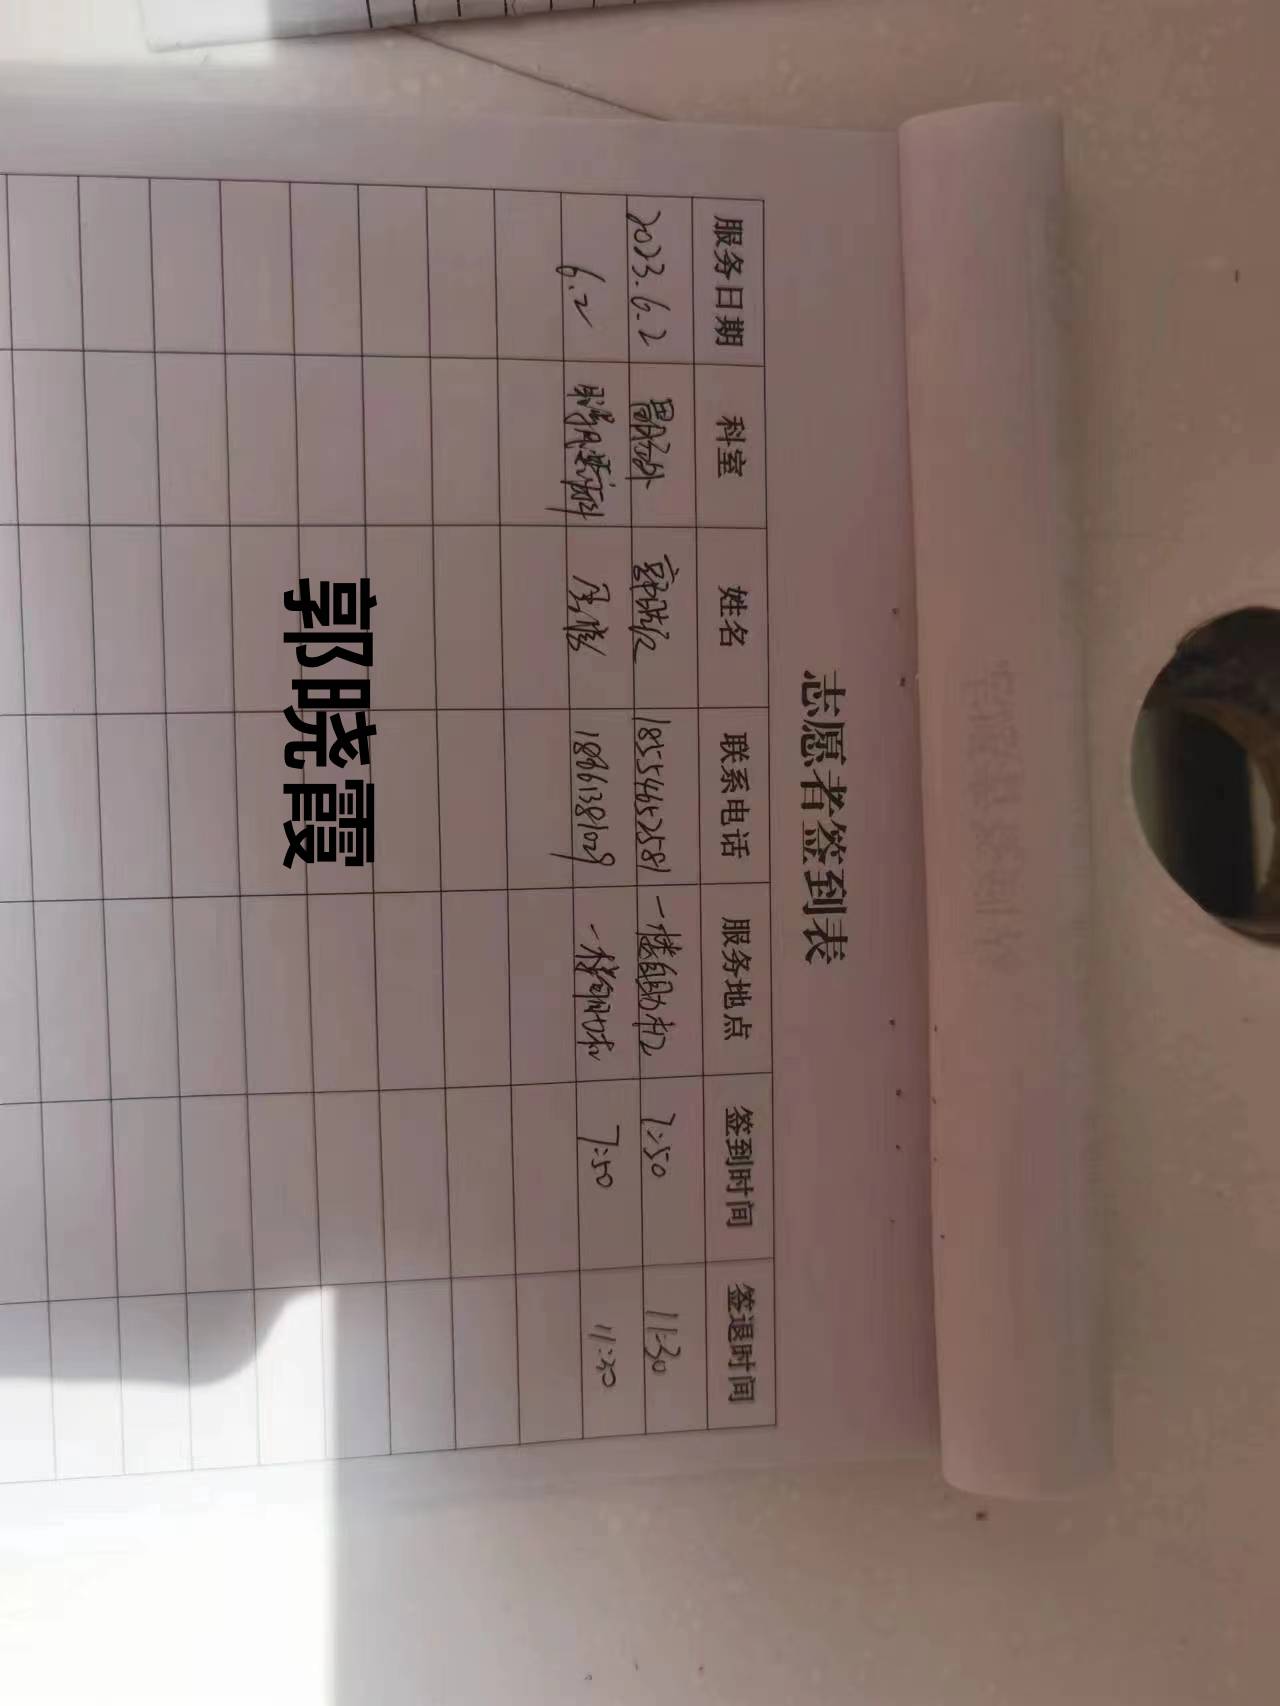 志愿者签到表
服务日期 科室 姓名 联系电话 服务地点 签到时间 签退时间
2023.6.2 胃肠外 18554652581 一楼自助机 7:50 11:30
6.2 18861381029 一楼 7:50 11:30
郭晓霞